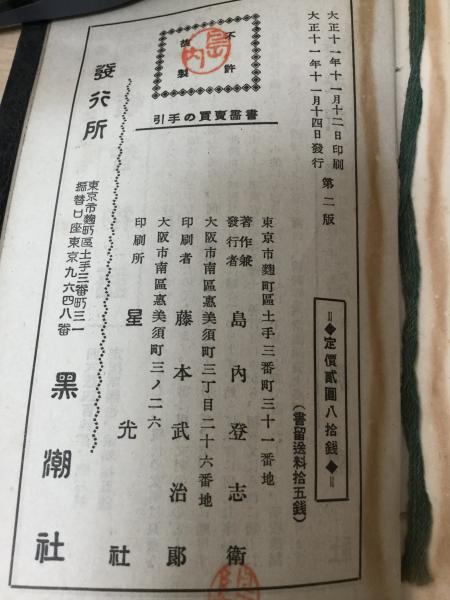 大正十一年十一月十二日印刷
大正十一年十一月十四日發行
第二版
||◆定價貳圓八拾錢◆||
(書留送料拾五錢)
東京市麴町區土手三番町三十一番地
著作兼發行者 島內登志衛
大阪市南區惠美須町三丁目二十六番地
印刷者 藤本武治郎
大阪市南區惠美須町三ノ二六
印刷所 星光社
引手の買賣畵書
不許
複製
島內
發行所
東京市麴町區土手三番町三一
振替口座東京九六四八番
黑潮社